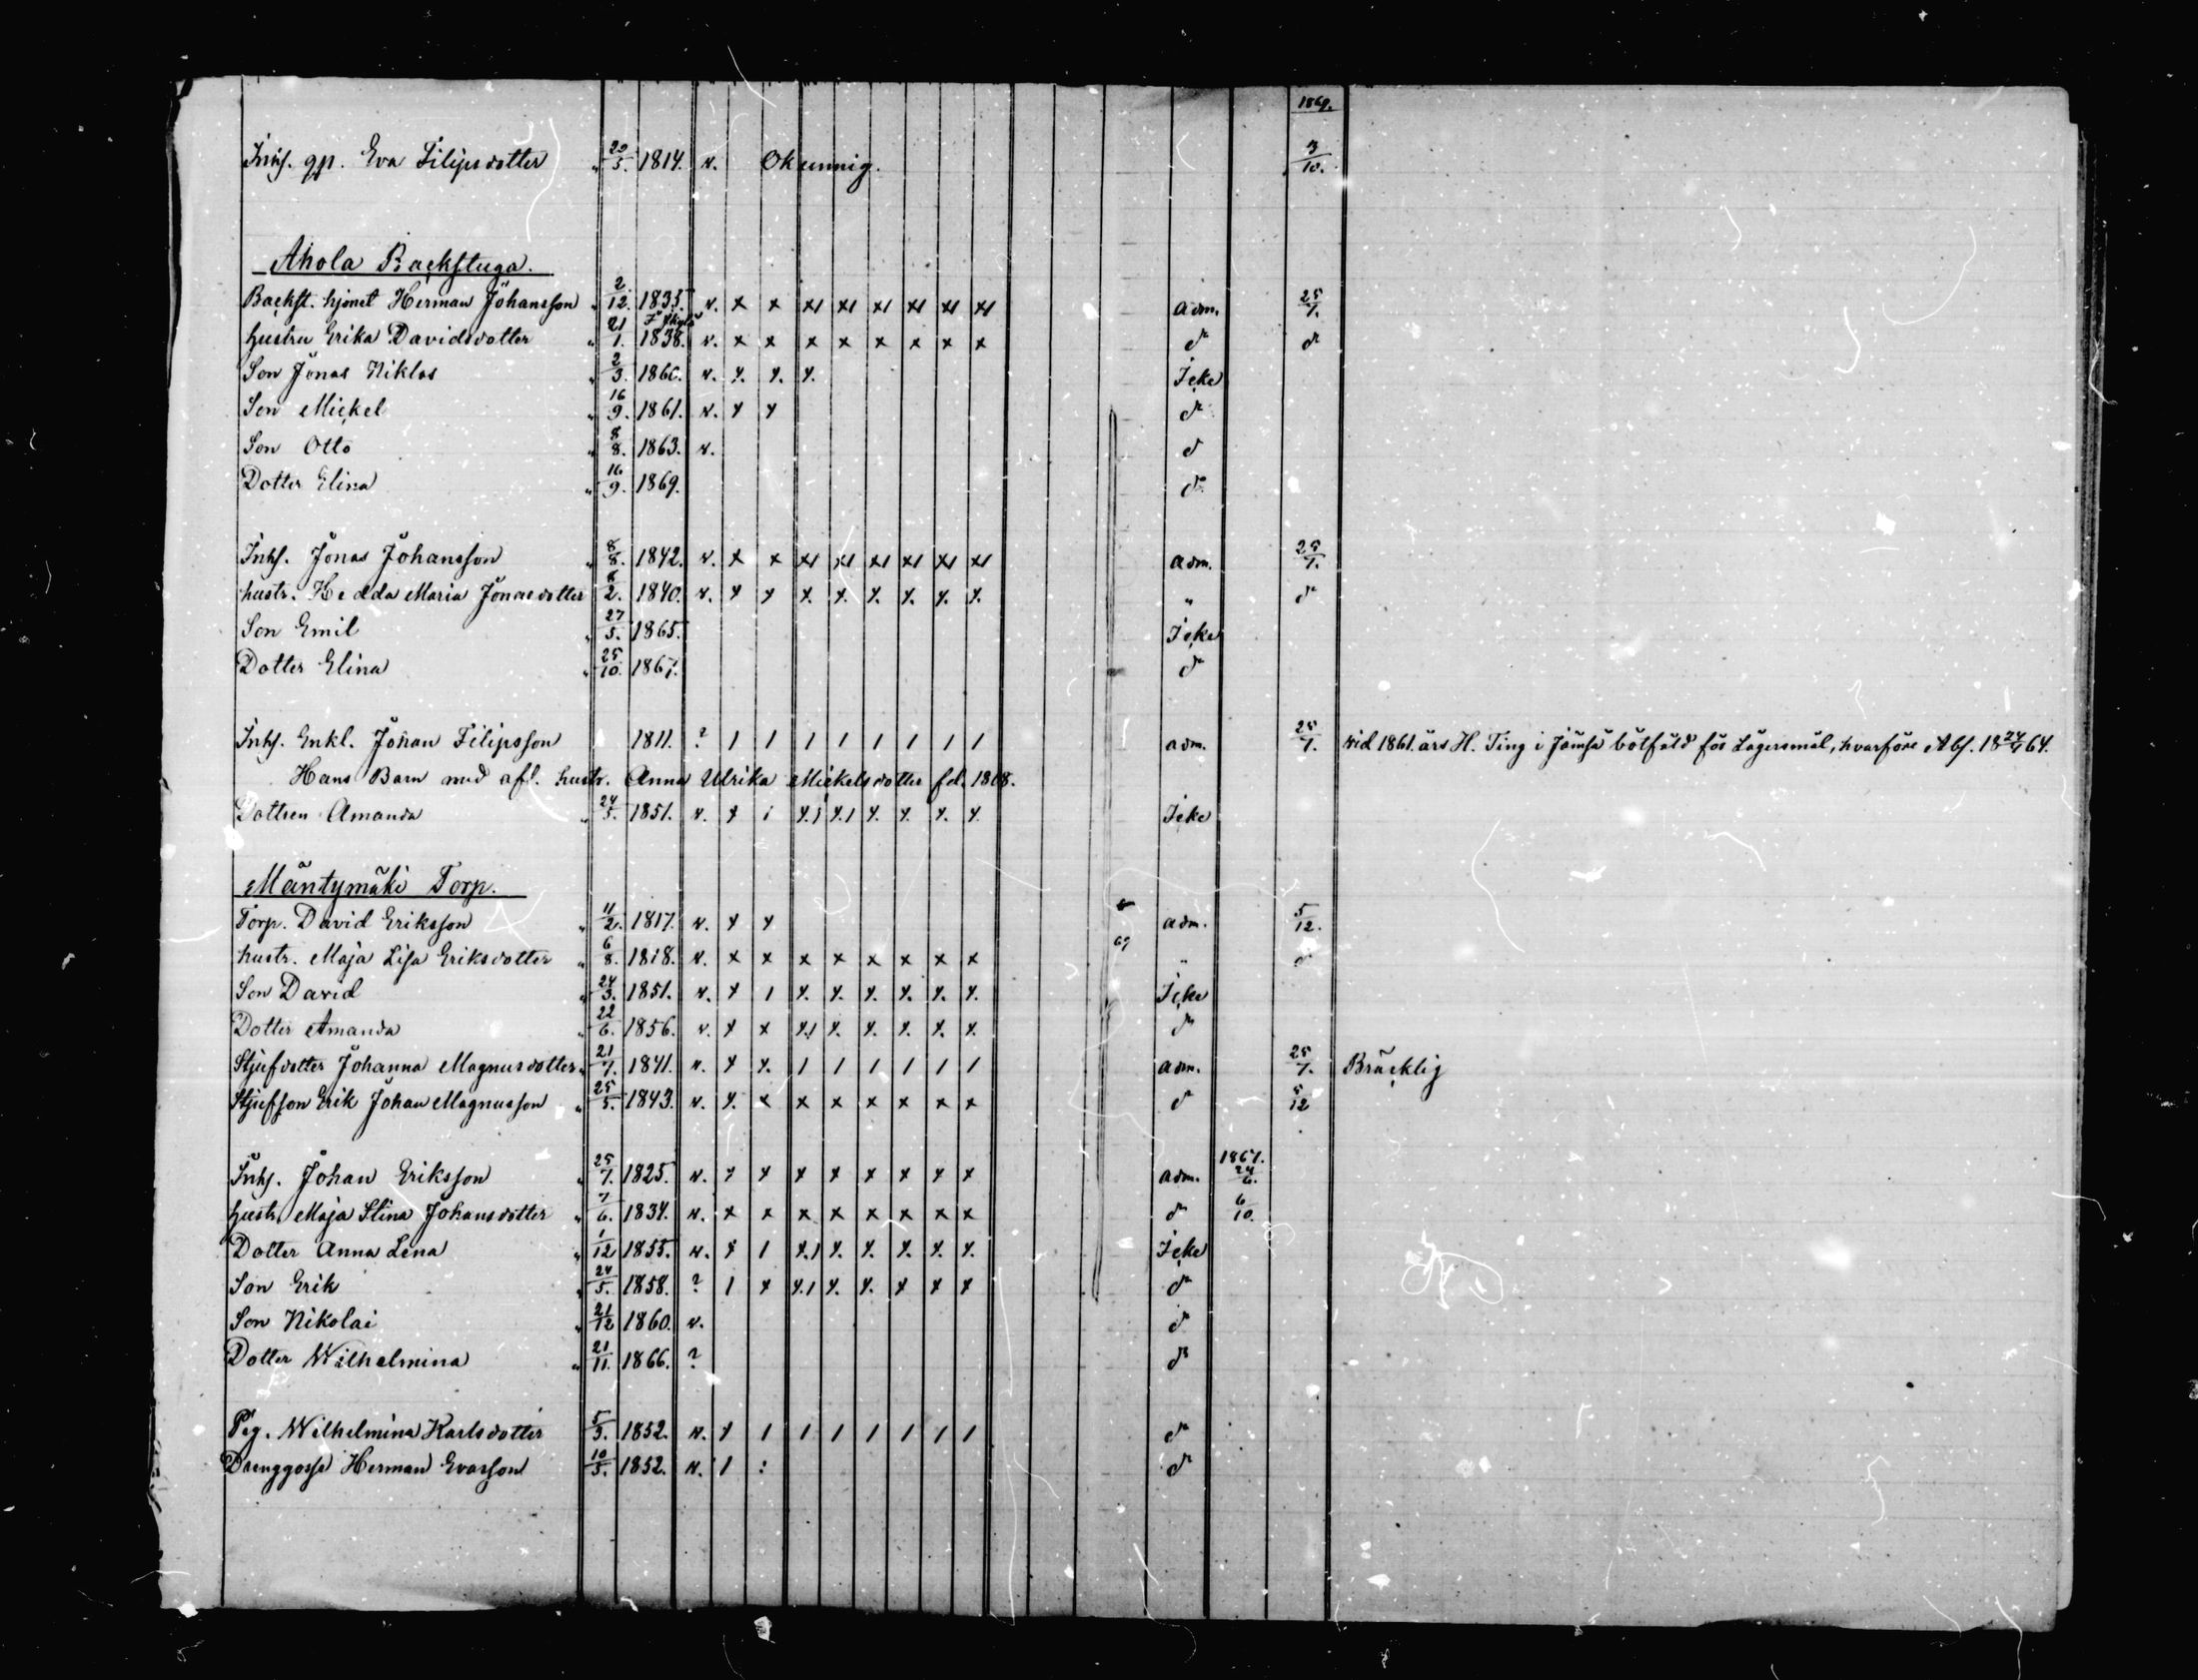 1869.
Inhs. gp. Eva Filipsdotter " 20/3. 1814. v. Okunnig. 3/10.
Ahola Backstuga.
Backst. hjonet Herman Johansson " 2/12. 1835. v. x x x1 x1 x1 x1 x1 x1 adm. 25/7.
hustru Erika Davidsdotter " 21/1. 1838. v. x x x x x x x x d:o d:o
Son Jonas Niklas " 2/3. 1860. v. y. y. y. Icke
Son Mickel " 16/9. 1861. v. y y d:o
Son Otto " 8/8. 1863. v. d:o
Dotter Elina " 16/9. 1869. d:o
Inhs. Jonas Johansson " 8/8. 1842. v. x x x1 x1 x1 x1 x1 x1 adm. 25/7.
hustr. Hedda Maria Jonaedotter 8/2. 1840. v. y y y. y. y. y. y. y. " d:o
Son Emil " 27/5. 1865. Icke
Dotter Elina " 25/10. 1867. d:o
Inhs. Enkl. Johan Filipsson 1811. ? 1 1 1 1 1 1 1 1 adm. 25/7. vid 1861. års H. Ting i Jämsä bötfäld för Lägersmål, hvarföre Abs. 18 24/4 64.
Hans Barn med afl. hustr. Anna Ulrika Mickelsdotter fd. 1808.
Dottren Amanda " 24/5. 1851. v. y i y.1 y.1 y. y. y. y. Icke
Mäntymäki Torp.
Torp. David Eriksson " 11/2. 1817. v. y y adm. 5/12.
hustr. Maja Lisa Eriksdotter " 6/8. 1818. v. x x x x x x x x 69 " d:o
Son David " 24/3. 1851. v. y 1 y. y. y. y. y. y. Icke
Dotter Amanda " 22/6. 1856. v. y x y.1 y. y. y. y. y. d:o
Stjufdotter Johanna Magnusdotter " 21/7. 1841. v. y y. 1 1 1 1 1 1 adm. 25/7. Bräcklig
Stjufson Erik Johan Magnusson " 25/5. 1843. v. y. x x x x x x x d:o 5/12
1867.
Inhs. Johan Eriksson " 25/7. 1825. v. y y x x x x x x adm. 24/6.
hustr. Maja Stina Johansdotter " 7/6. 1834. v. x x x x x x x x d:o 6/10.
Dotter Anna Lena " 1/12 1855. v. y 1 y.1 y. y. y. y. y. Icke
Son Erik " 24/5. 1858. ? 1 x y.1 y. y. x x x d:o
Son Nikolai " 21/12 1860. v. d:o
Dotter Wilhelmina " 21/11. 1866. ? d:o
Pig. Wilhelmina Karlsdotter 5/3. 1852. v. y 1 1 1 1 1 1 1 d:o
Drenggosse Herman Evasson 10/3. 1852. v. 1 : d:o